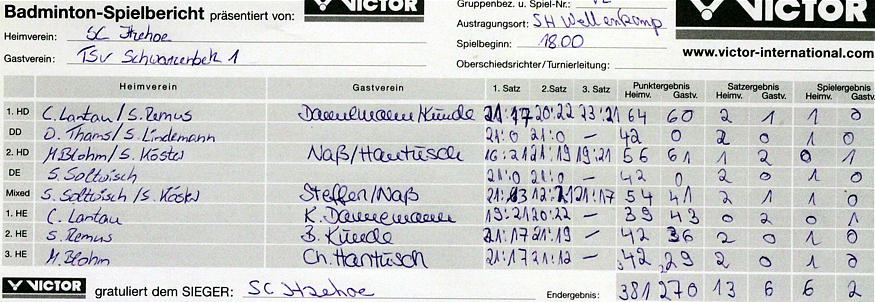 Badminton-Spielbericht präsentiert von: VICTOR
Gruppenbez. u. Spiel-Nr.:
VICTOR
Heimverein: SC Itzehoe
Austragungsort: SH Wellenkamp
Gastverein: TSV Schwarzenbek 1
Spielbeginn: 18.00
www.victor-international.com
Oberschiedsrichter/Turnierleitung:
Heimverein Gastverein 1. Satz 2. Satz 3. Satz Punktergebnis Satzergebnis Spielergebnis
Heimv. Gastv. Heimv. Gastv. Heimv. Gastv.
1. HD C. Lantau/S. Remus Dannemann/Kunde 21:17 20:22 23:21 64 60 2 1 1 0
DD D. Thams/S. Lindemann 21:0 21:0 – 42 0 2 0 1 0
2. HD M. Blohm/S. Köster Naß/Hantusch 16:21 21:19 19:21 56 61 1 2 0 1
DE S. Soltwisch 21:0 21:0 – 42 0 2 0 1 0
Mixed S. Soltwisch/S. Köster Steffen/Naß 21:3 12:21 21:17 54 41 2 1 1 0
1. HE C. Lantau K. Dannemann 19:21 20:22 – 39 43 0 2 0 1
2. HE S. Remus B. Kunde 21:17 21:19 – 42 36 2 0 1 0
3. HE M. Blohm Ch. Hantusch 21:17 21:12 – 42 29 2 0 1 0
VICTOR gratuliert dem SIEGER: SC Itzehoe Endergebnis: 381 270 13 6 6 2